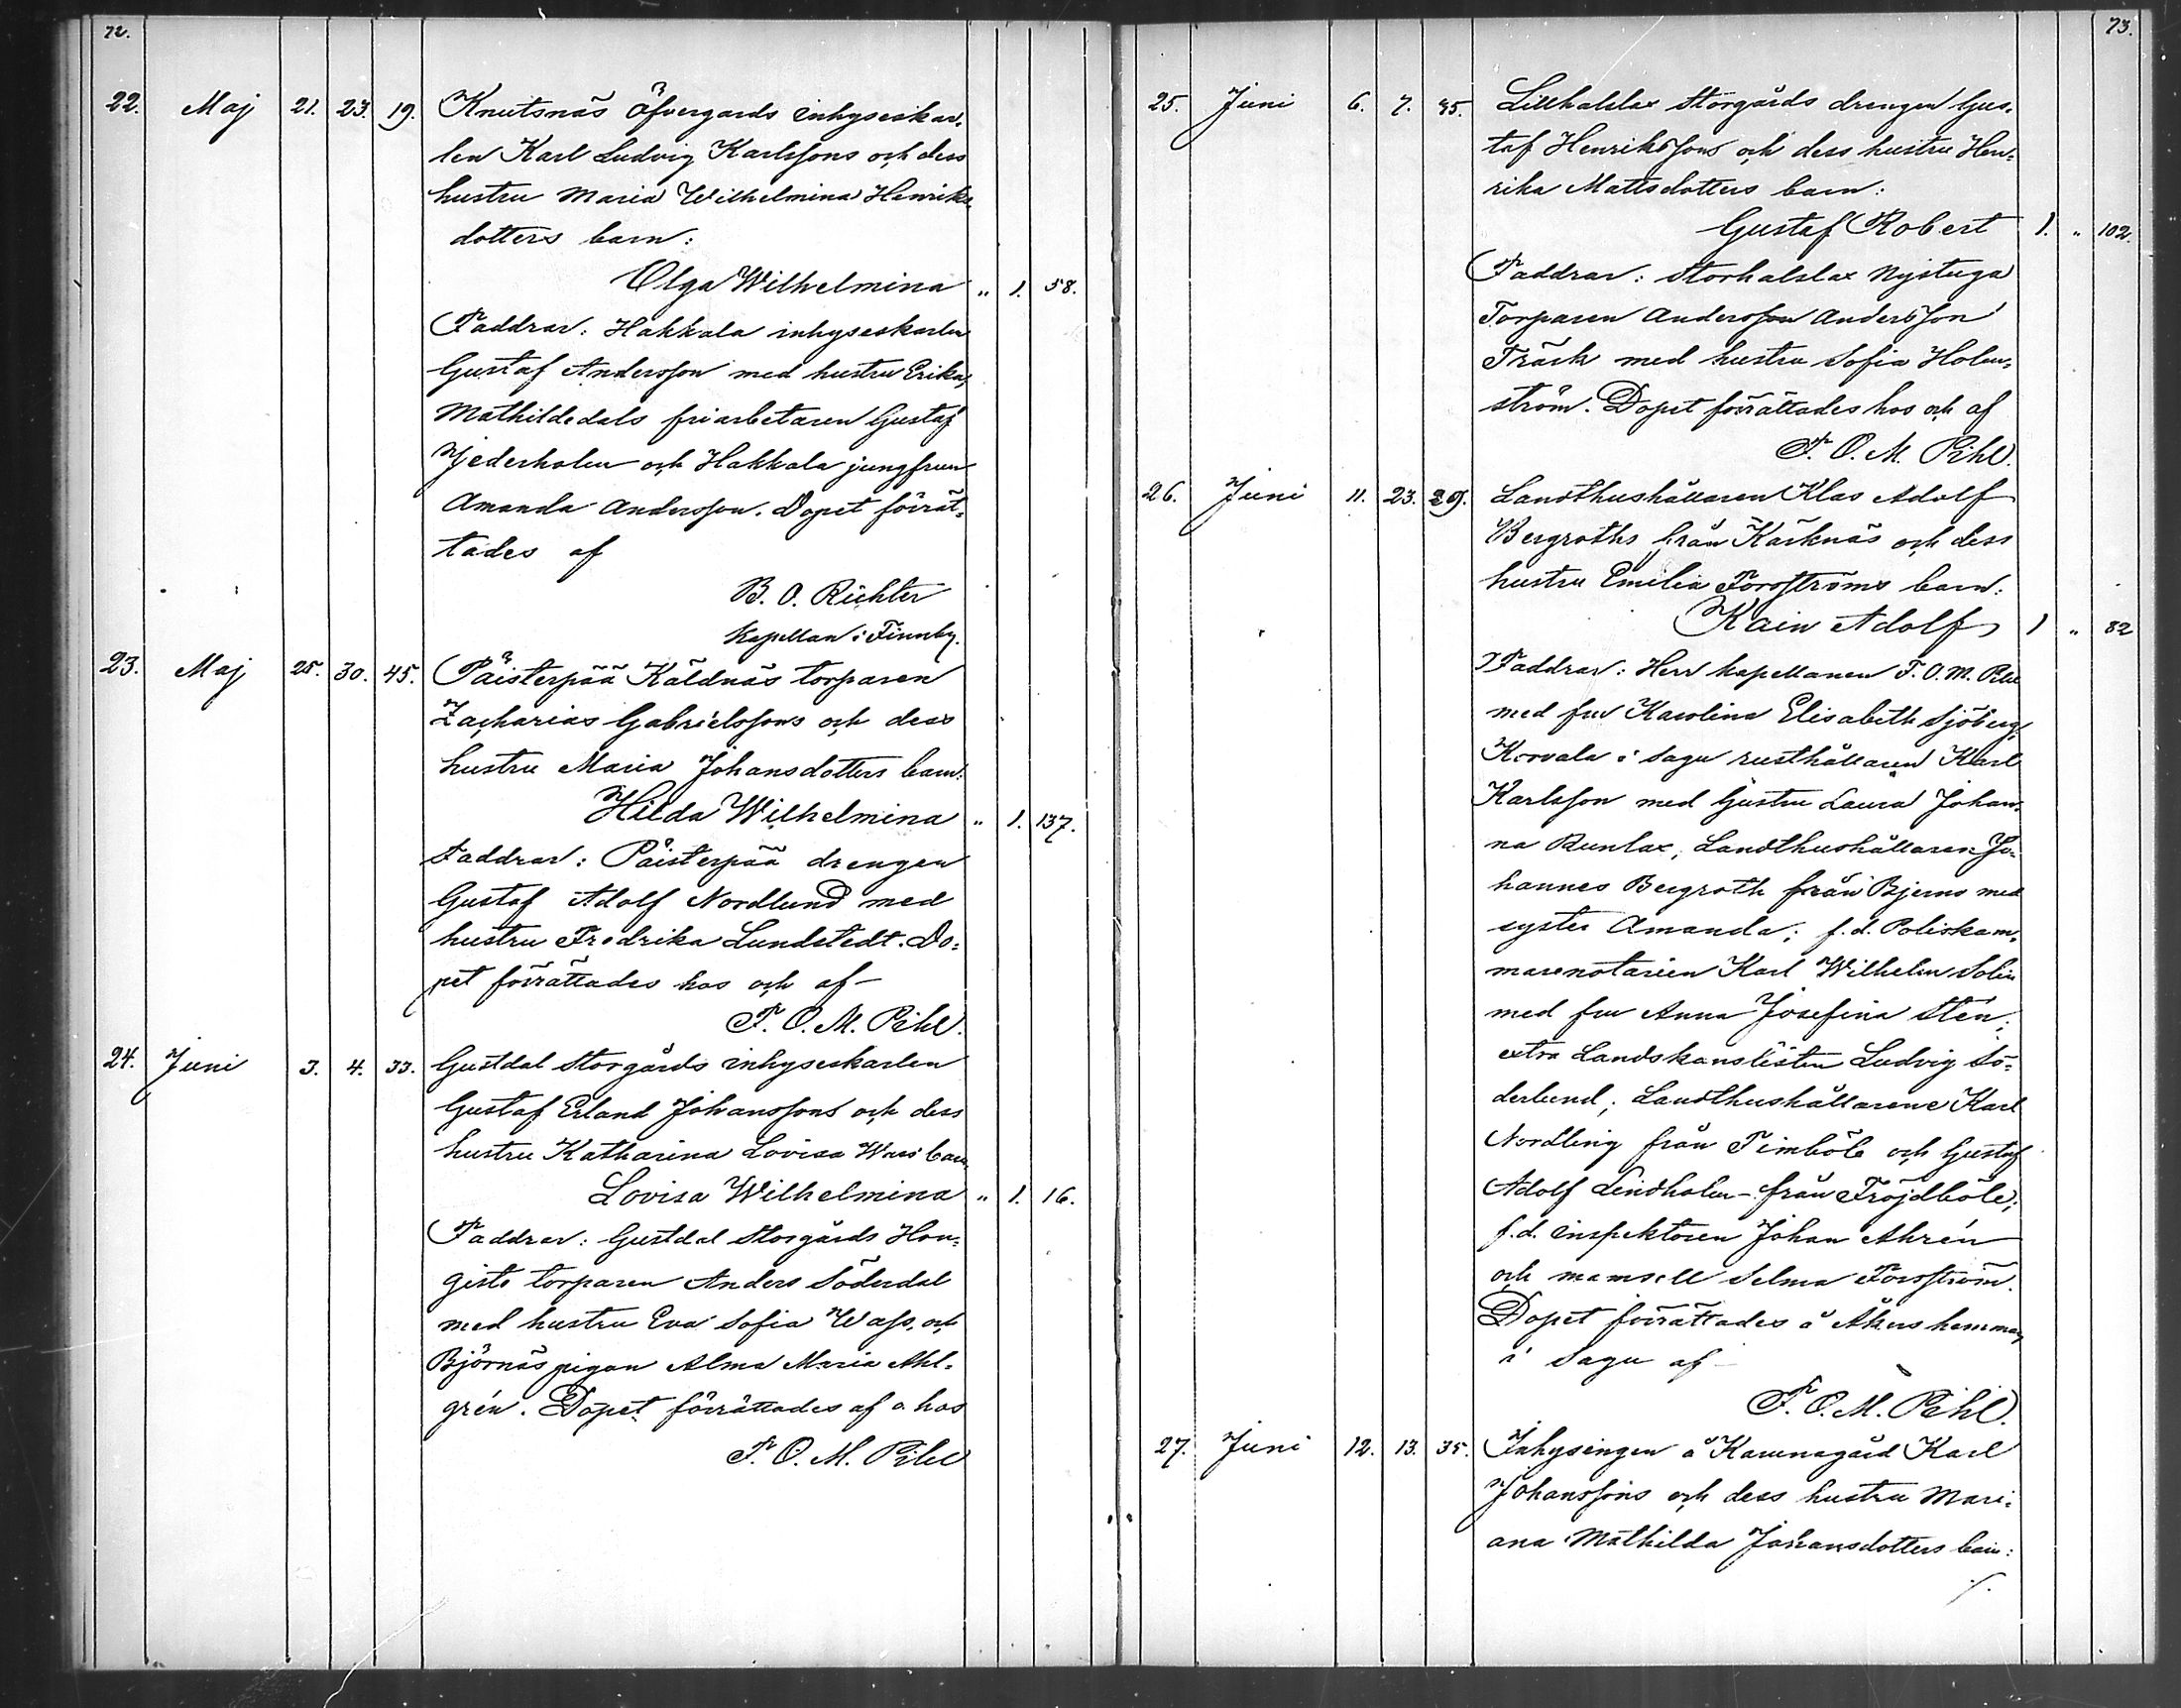 72.
22. Maj 21. 23. 19. Knutsnäs Öfvergårds inhyseskar-
len Karl Ludvig Karlssons och dess
hustru Maria Wilhelmina Henriks-
dotters barn:
Olga Wilhelmina " 1. 58.
Faddrar: Hakkala inhyseskarlen
Gustaf Andersson med hustru Erika,
Mathildedals friarbetaren Gustaf
Jederholm och Hakkala jungfrun
Amanda Andersson. Dopet förrät-
tades af
B. O. Richter
Kapellan i Finnby.
23. Maj 25. 30. 45. Påisterpää Käldnäs torparen
Zacharias Gabrielssons och dess
hustru Maria Johansdotters barn:
Hilda Wilhelmina " 1. 137.
Faddrar: Påisterpää drengen
Gustaf Adolf Nordlund med
hustru Fredrika Lundstedt. Do-
pet förrättades hos och af
F. O. M. Pihl.
24. Juni 3. 4. 33. Gustdal Storgårds inhyseskarlen
Gustaf Erland Johanssons och dess
hustru Katharina Lovisa barn
Lovisa Wilhelmina " 1. 16.
Faddrar: Gustdal Storgårds Hon-
gisto torparen Anders Söderdal
med hustru Eva Sofia Wass, och
Björnäs pigan Alma Maria Ahl-
grén. Dopet förrättades af o. hos
F. O. M. Pihl
73.
25. Juni 6. 7. 35. Lillhalslax Storgårds drengen Gus-
taf Henrikssons och dess hustru Hen-
rika Mattsdotters barn:
Gustaf Robert 1. " 102.
Faddrar: Storhalslax Nystuga
Torparen Andersson Andersson
Träsk med hustru Sofia Holm-
ström. Dopet förrättades hos och af
F. O. M. Pihl.
26. Juni 11. 23. 29. Landthushållaren Klas Adolf
Bergroths från Kärknäs och dess
hustru Emilia Forsströms barn:
Kain Adolf 1 " 82
Faddrar: Herr kapellanen F. O. M. Pihl
med fru Karolina Elisabeth Sjöberg,
Korvala i Sagu rusthållaren Karl
Karlsson med hustru Laura Johan-
na Runlax, Landthushållaren Jo-
hannes Bergroth från Bjerno med
syster Amanda; f. d. Poliskam-
marenotarien Karl Wilhelm Solin
med fru Anna Josefina Stén;
extra Landskanslisten Ludvig Sö-
derlund; Landthushållarene Karl
Nordling från Pimböle och Gustaf
Adolf Lindholm från Fröjdböle;
f. d. inspektoren Johan Ahrén
och mamsell Selma Forsström.
Dopet förrättades å Åkers hemman
i Sagu af
F. O. M. Pihl.
27. Juni 12. 13. 35. Inhysingen å Karunagård Karl
Johanssons och dess hustru Mari-
ana Mathilda Johansdotters barn:
./.